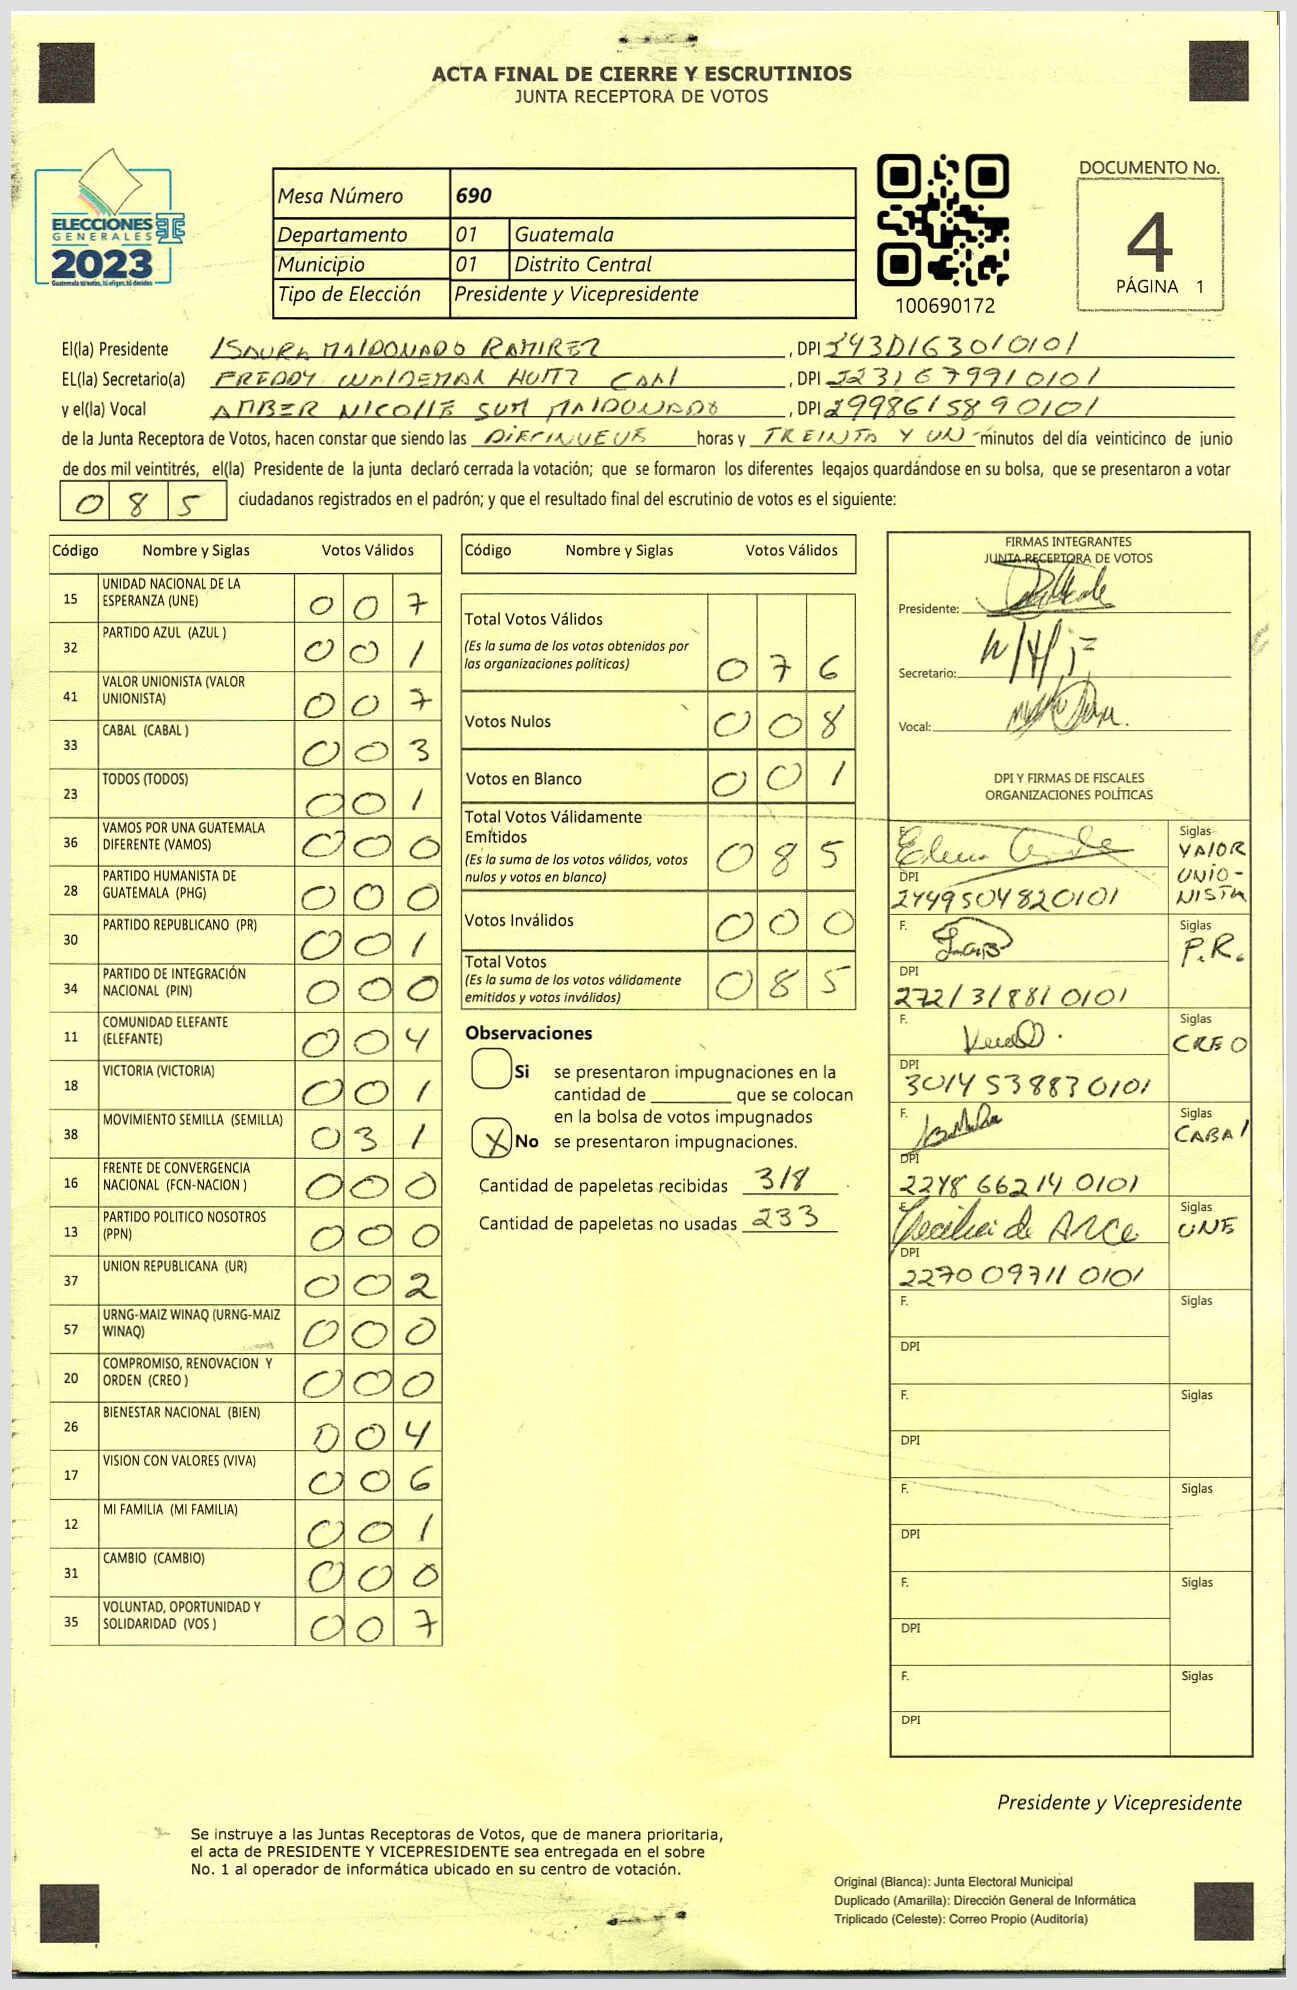 ACTA FINAL DE CIERRE Y ESCRUTINIOS
JUNTA RECEPTORA DE VOTOS
ELECCIONES
GENERALES
2023
Guatemala tú votas, tú eliges, tú decides
Mesa Número 690
Departamento 01 Guatemala
Municipio 01 Distrito Central
Tipo de Elección Presidente y Vicepresidente
100690172
DOCUMENTO No.
4
PÁGINA 1
El(la) Presidente ISAURA MALDONADO RAMIREZ, DPI
EL(la) Secretario(a) FREDDY WALDEMAR, DPI
y el(la) Vocal AMBER NICOLLE SUM MALDONADO, DPI 2998615890101
de la Junta Receptora de Votos, hacen constar que siendo las DIECINUEVE horas y TREINTA Y UN minutos del día veinticinco de junio
de dos mil veintitrés, el(la) Presidente de la junta declaró cerrada la votación; que se formaron los diferentes legajos quardándose en su bolsa, que se presentaron a votar
085 ciudadanos registrados en el padrón; y que el resultado final del escrutinio de votos es el siguiente:
Código Nombre y Siglas Votos Válidos
15 UNIDAD NACIONAL DE LA ESPERANZA (UNE) 007
32 PARTIDO AZUL (AZUL ) 001
41 VALOR UNIONISTA (VALOR UNIONISTA) 007
33 CABAL (CABAL ) 003
23 TODOS (TODOS) 001
36 VAMOS POR UNA GUATEMALA DIFERENTE (VAMOS) 000
28 PARTIDO HUMANISTA DE GUATEMALA (PHG) 000
30 PARTIDO REPUBLICANO (PR) 001
34 PARTIDO DE INTEGRACIÓN NACIONAL (PIN) 000
11 COMUNIDAD ELEFANTE (ELEFANTE) 004
18 VICTORIA (VICTORIA) 001
38 MOVIMIENTO SEMILLA (SEMILLA) 031
16 FRENTE DE CONVERGENCIA NACIONAL (FCN-NACION ) 000
13 PARTIDO POLITICO NOSOTROS (PPN) 000
37 UNION REPUBLICANA (UR) 002
57 URNG-MAIZ WINAQ (URNG-MAIZ WINAQ) 000
20 COMPROMISO, RENOVACION Y ORDEN (CREO ) 000
26 BIENESTAR NACIONAL (BIEN) 004
17 VISION CON VALORES (VIVA) 006
12 MI FAMILIA (MI FAMILIA) 001
31 CAMBIO (CAMBIO) 000
35 VOLUNTAD, OPORTUNIDAD Y SOLIDARIDAD (VOS ) 007
Código Nombre y Siglas Votos Válidos
Total Votos Válidos
(Es la suma de los votos obtenidos por
las organizaciones politicas) 076
Votos Nulos 008
Votos en Blanco 001
Total Votos Válidamente
Emitidos
(Es la suma de los votos válidos, votos
nulos y votos en blanco) 085
Votos Inválidos 000
Total Votos
(Es la suma de los votos válidamente
emitidos y votos inválidos) 085
Observaciones
Si se presentaron impugnaciones en la
cantidad de ________ que se colocan
en la bolsa de votos impugnados
X No se presentaron impugnaciones.
Cantidad de papeletas recibidas 318
Cantidad de papeletas no usadas 233
FIRMAS INTEGRANTES
JUNTA RECEPTORA DE VOTOS
Presidente:
Secretario:
Vocal:
DPI Y FIRMAS DE FISCALES
ORGANIZACIONES POLÍTICAS
F. Siglas VALOR UNIO-NISTA
DPI 2449504820101
F. Siglas P.R.
DPI 2721318810101
F. Siglas CREO
DPI 3014538830101
F. Siglas CABAL
DPI 2248662140101
F. Cecilia de Arce Siglas UNE
DPI 2270097110101
F. Siglas
DPI
F. Siglas
DPI
F. Siglas
DPI
F. Siglas
DPI
F. Siglas
DPI
Presidente y Vicepresidente
Se instruye a las Juntas Receptoras de Votos, que de manera prioritaria,
el acta de PRESIDENTE Y VICEPRESIDENTE sea entregada en el sobre
No. 1 al operador de informática ubicado en su centro de votación.
Original (Blanca): Junta Electoral Municipal
Duplicado (Amarilla): Dirección General de Informática
Triplicado (Celeste): Correo Propio (Auditoría)